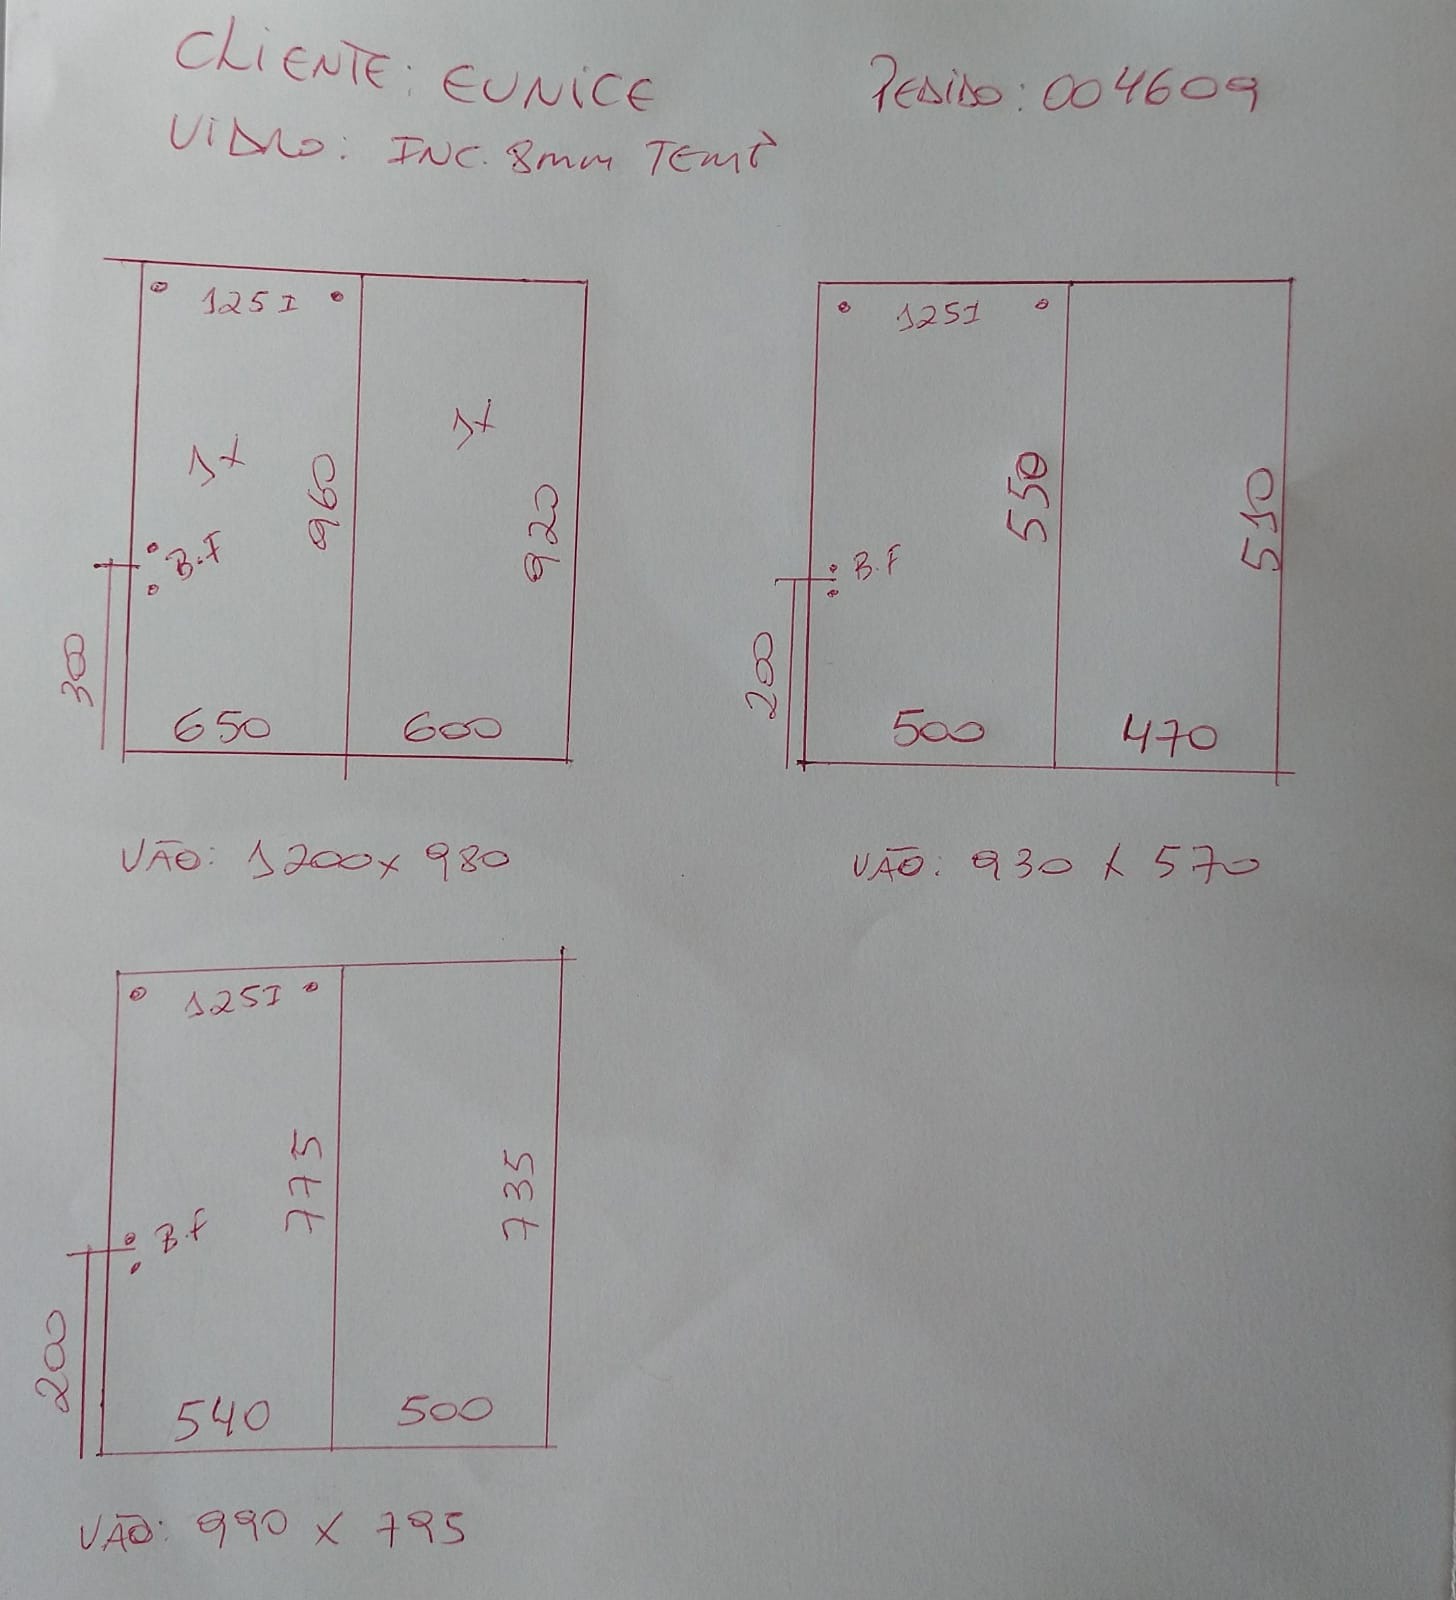 CLIENTE: EUNICE
PEDIDO: 004609
VIDRO: INC. 8mm TEMP
125I
1x
1x
960
920
B.F
300
650
600
VÃO: 1200 x 980
125I
550
510
B.F
200
500
470
VÃO: 930 x 570
125I
775
735
B.F
200
540
500
VÃO: 990 x 795